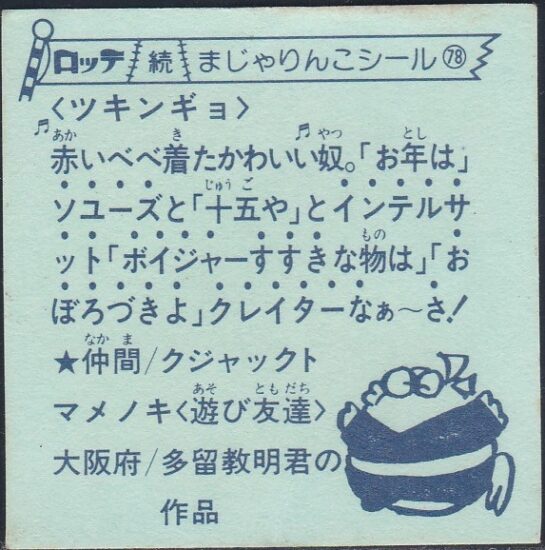 ロッテ 続 まじゃりんこシール 78
〈ツキンギョ〉
♬赤いべべ着たかわいい♬奴。「お年は」
ソユーズと「十五や」とインテルサ
ット「ボイジャーすすきな物は」「お
ぼろづきよ」クレイターなぁ〜さ!
★仲間/クジャックト
マメノキ〈遊び友達〉
大阪府/多留教明君の
作品